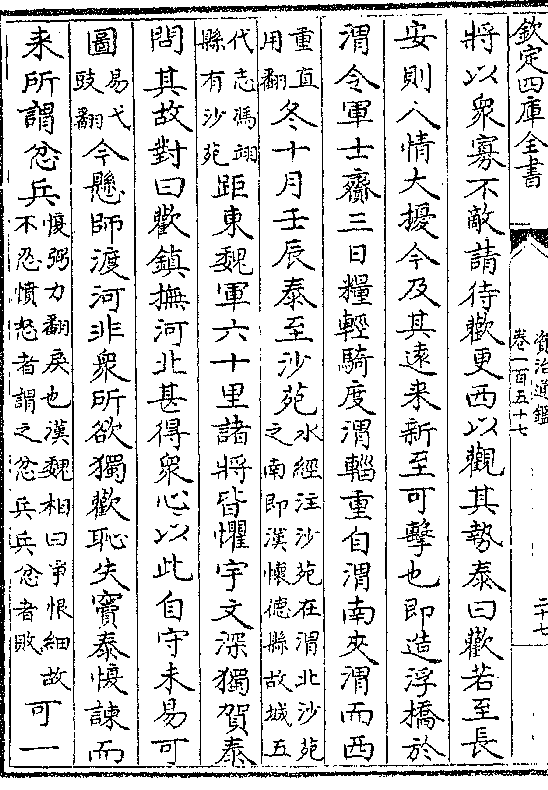 欽定四庫全書
資治通鑑
卷一百五十七
二十七
將以衆寡不敵請待歡更西以觀其勢泰曰歡若至長
安則人情大擾今及其遠来新至可擊也即造浮橋於
渭令軍士齎三日糧輕騎度渭輜重自渭南夾渭而西
重直用翻冬十月壬辰泰至沙苑水經注沙苑在渭北沙苑之南即漢懷德縣故城五
代志馮翊縣有沙苑距東魏軍六十里諸將皆懼宇文深獨賀泰
問其故對曰歡鎮撫河北甚得衆心以此自守未易可
圖易弋豉翻今懸師渡河非衆所欲獨歡恥失竇泰愎諫而
来所謂忿兵愎弼力翻戾也漢魏相曰爭恨細故不忍憤怒者謂之忿兵兵忿者敗可一